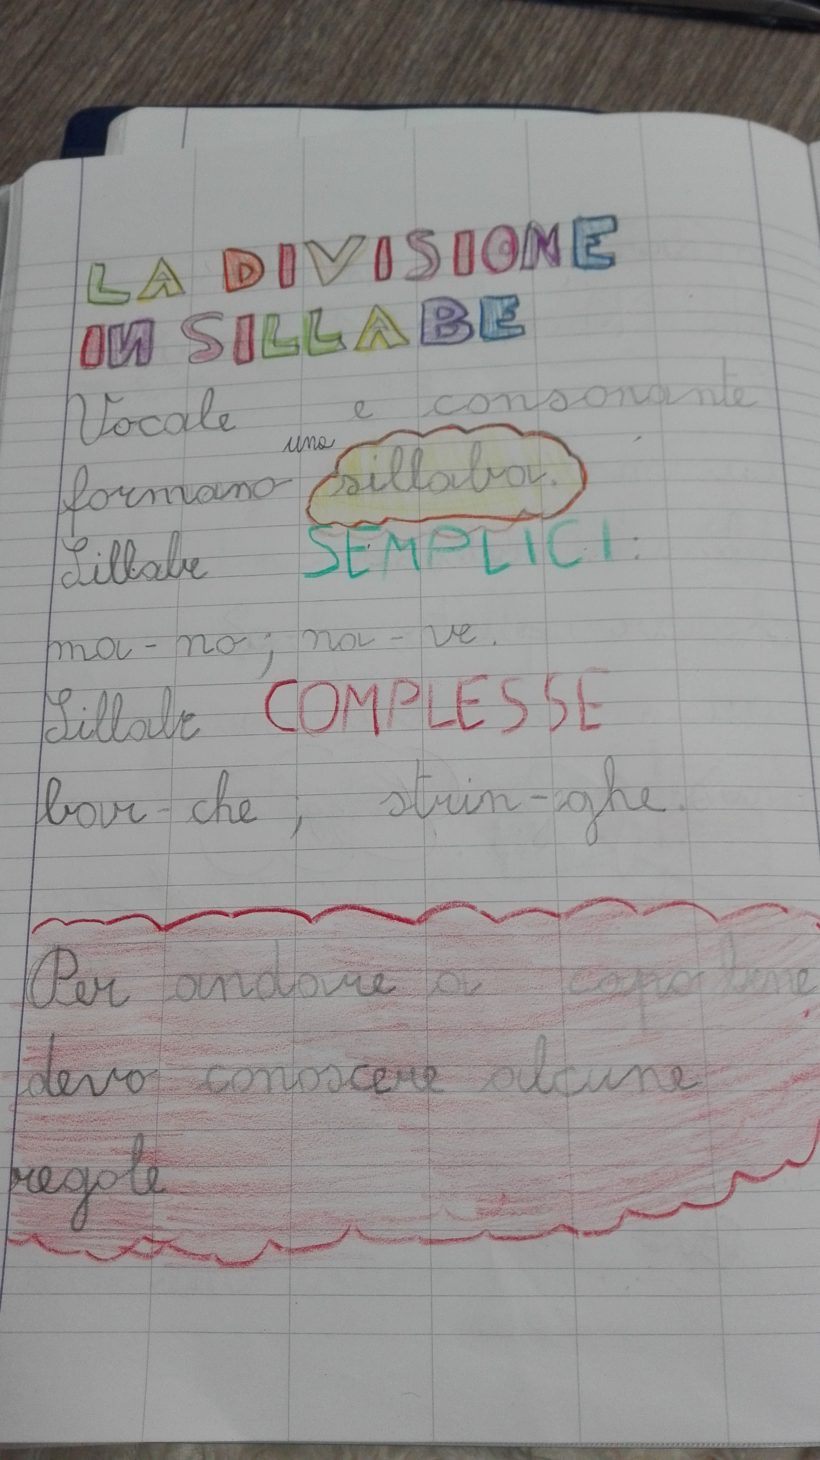 LA DIVISIONE
IN SILLABE
Vocale e consonante
formano una sillaba.
Sillabe SEMPLICI:
ma-no; na-ve.
Sillabe COMPLESSE
bar-che; strin-ghe.
Per andare a capo bene
devo conoscere alcune
regole